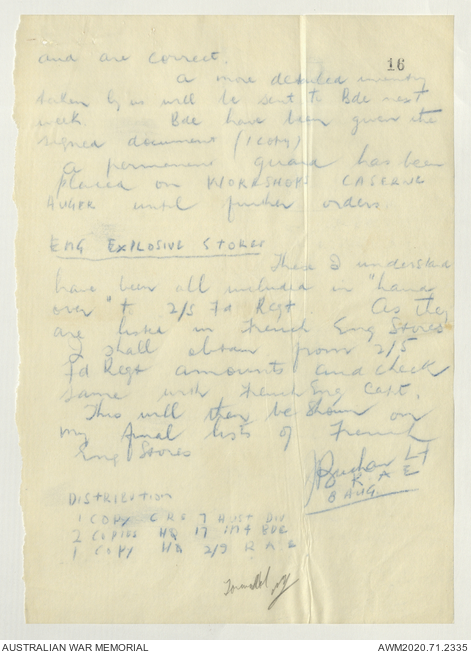 16
and are correct.
A more detailed inventory
taken by us will be sent to Bde next
week. Bde have been given the
signed document (1 COPY)
A permanent guard has been
placed on WORKSHOPS CASERNE
AUGER until further orders.
ENG EXPLOSIVE STORES
These I understand
have been all included in "hand
over" to 2/5 Fd Regt. As they
are listed in French Eng Stores
I shall obtain from 2/5
Fd Regt amounts and check
same with French Eng Capt.
This will then be shown on
my final lists of French
Eng Stores
Lt
R A E
8 AUG.
DISTRIBUTION
1 COPY CRE 7 AUST DIV
2 COPIES HQ 17 INF BDE
1 COPY HQ 2/9 R A E
AUSTRALIAN WAR MEMORIAL
AWM2020.71.2335